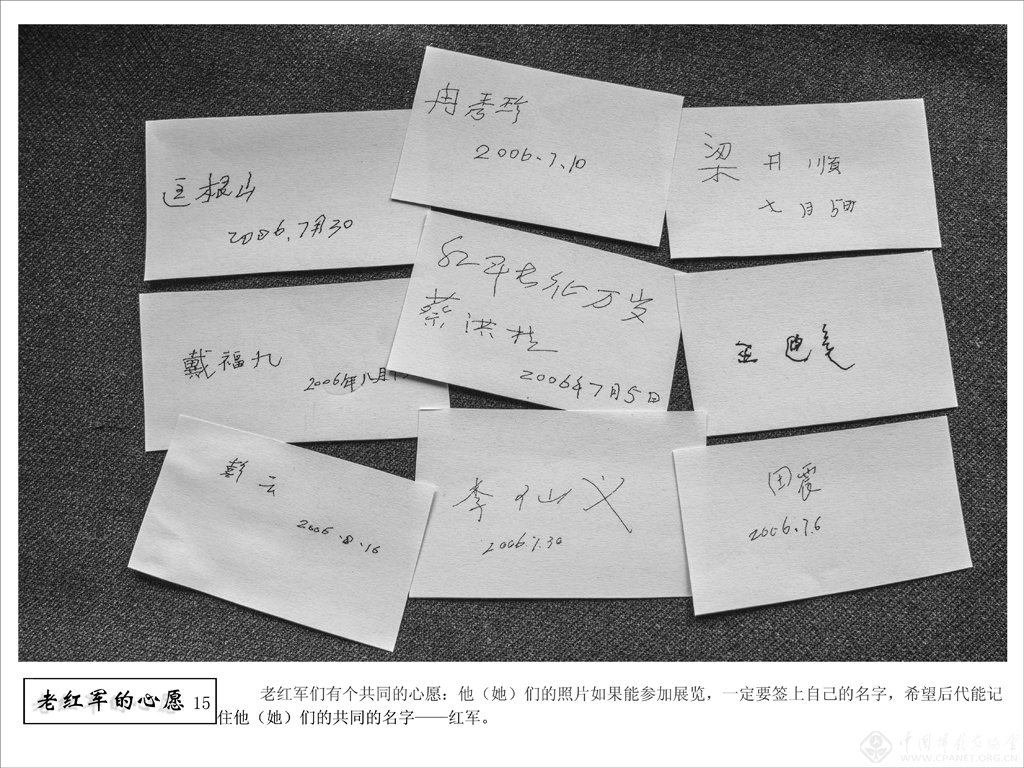 冉秀珍
2006.7.10
匡根山
2006.7月30
梁井顺
七月5日
红军长征万岁
蔡洪柱
2006年7月5日
戴福九
2006年八月
王
彭云
2006.8.16
李仙义
2006.7.30
田震
2006.7.6
老红军的心愿 15
老红军们有个共同的心愿：他（她）们的照片如果能参加展览，一定要签上自己的名字，希望后代能记
住他（她）们的共同的名字——红军。
WWW.CPANET.ORG.CN